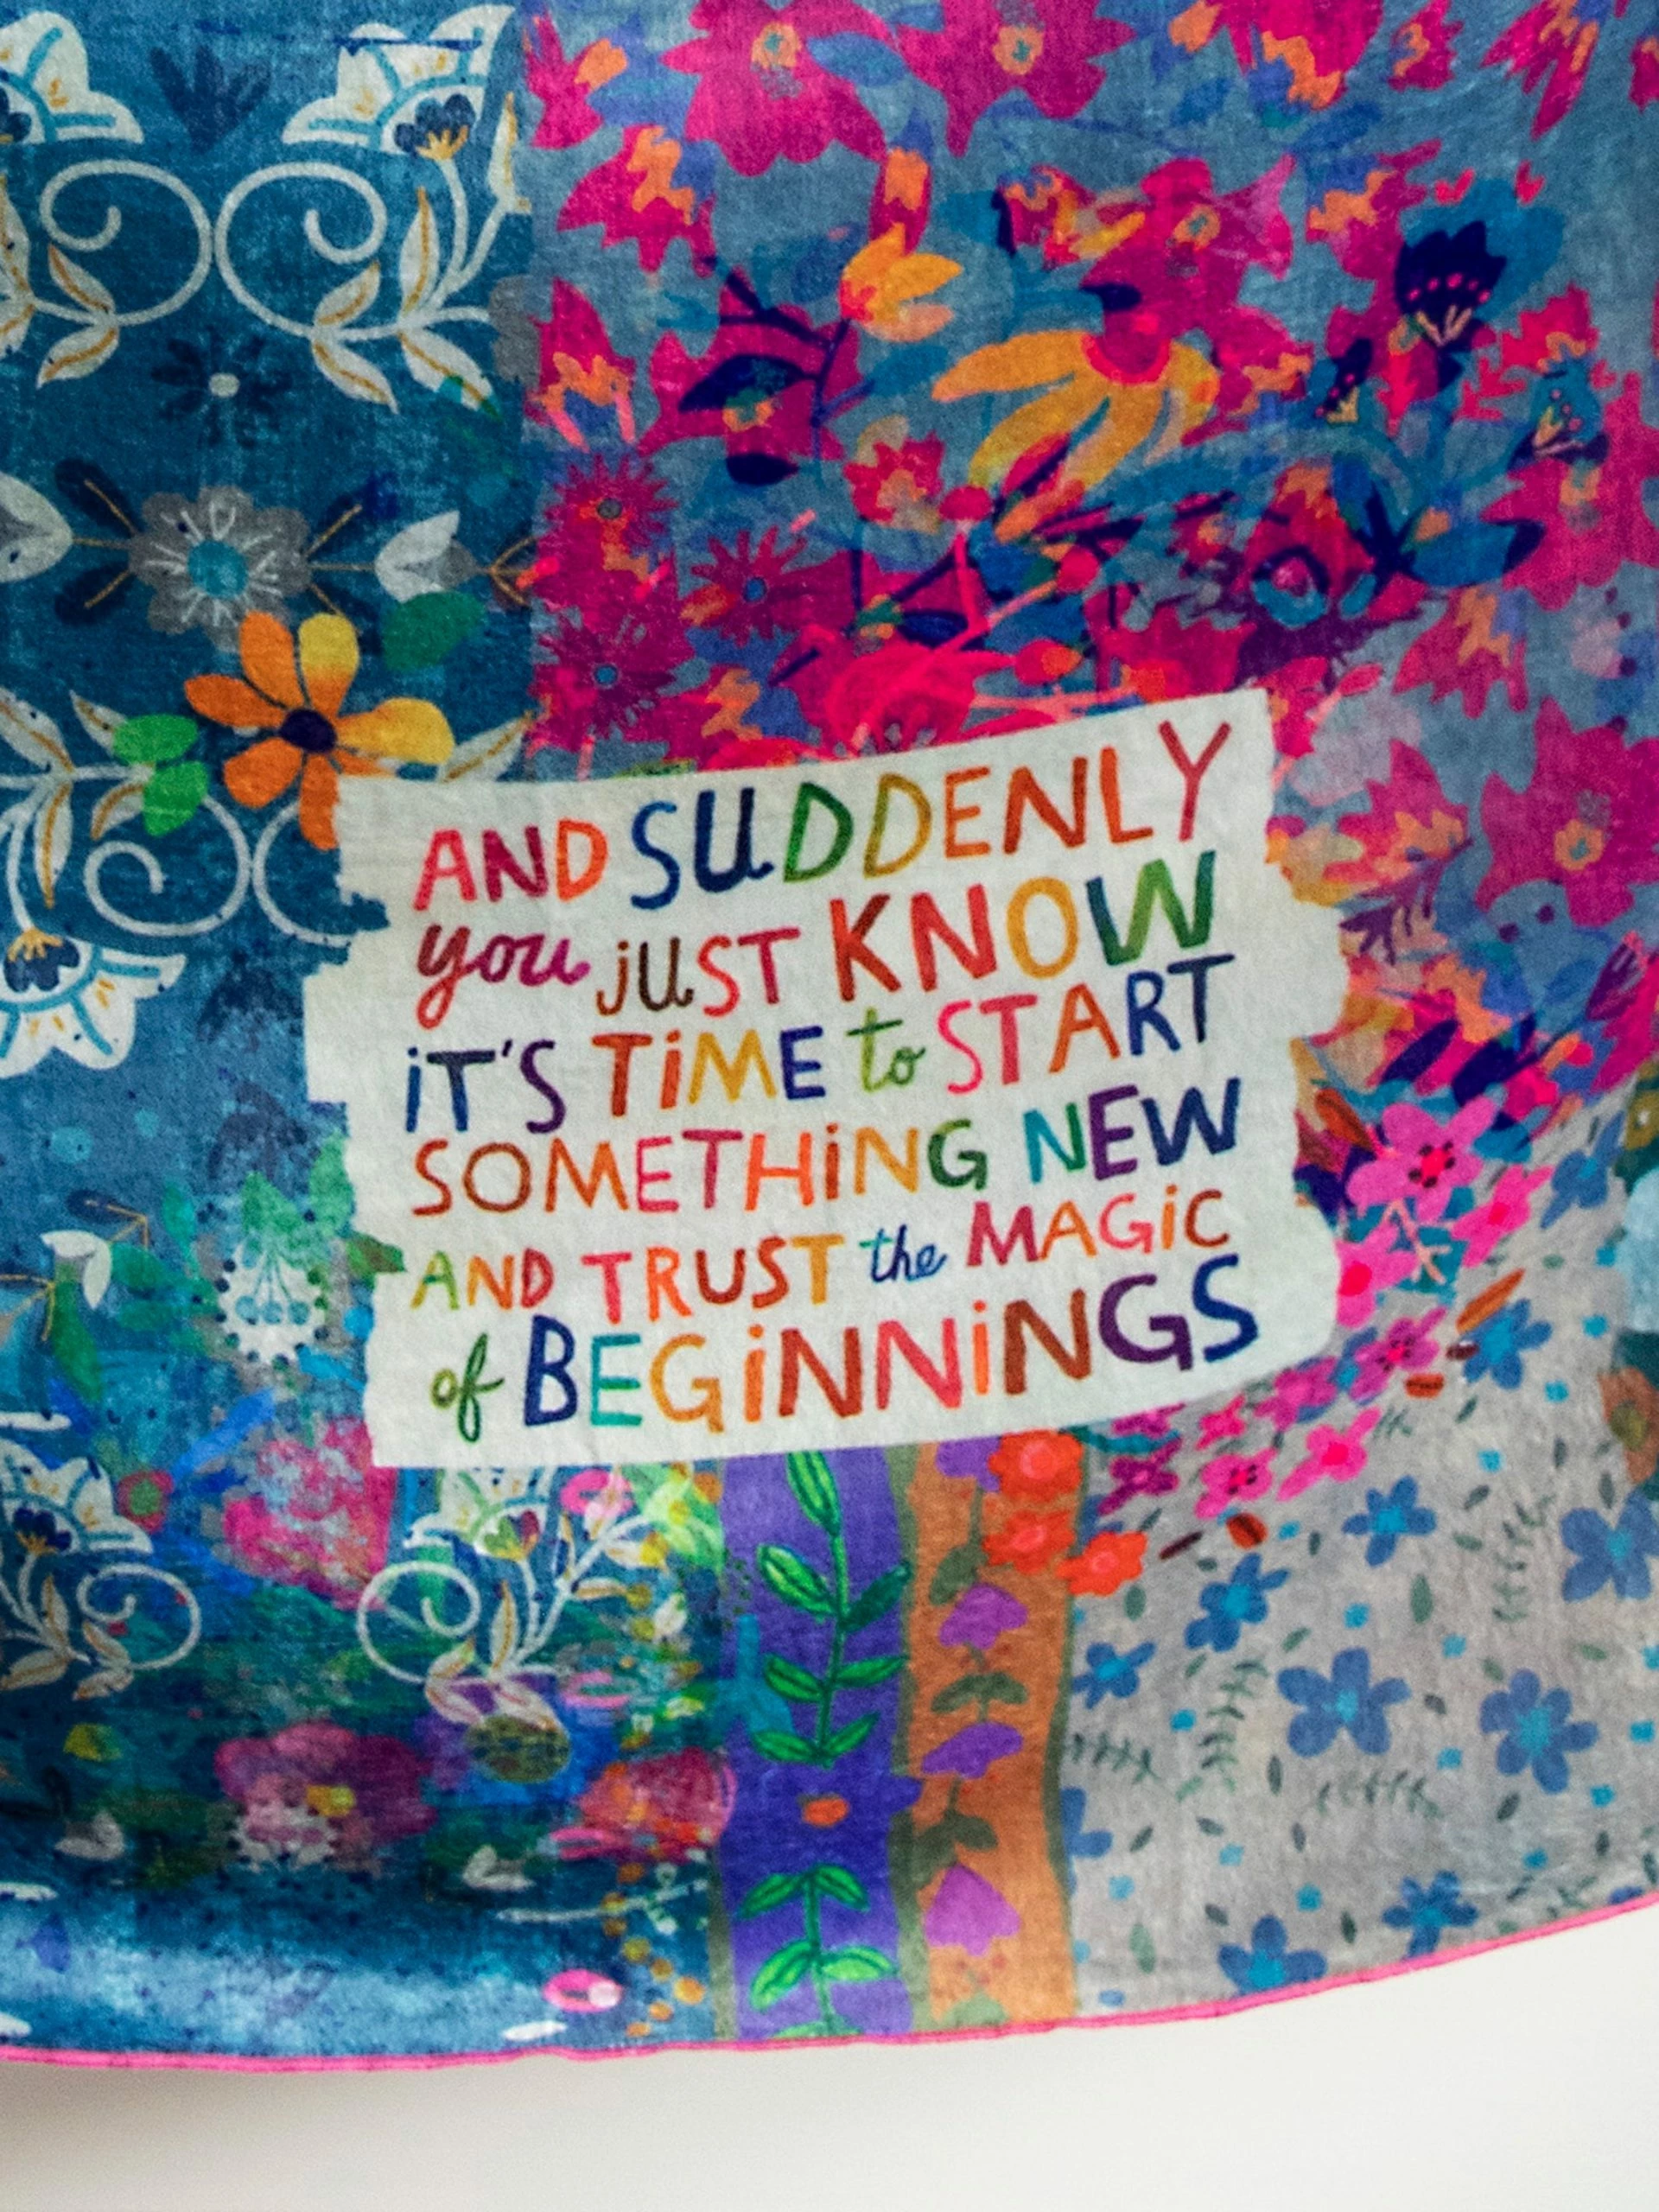 AND SUDDENLY
you just KNOW
iT'S TiME to START
SOMETHiNG NEW
AND TRUST the MAGiC
of BEGiNNiNGS